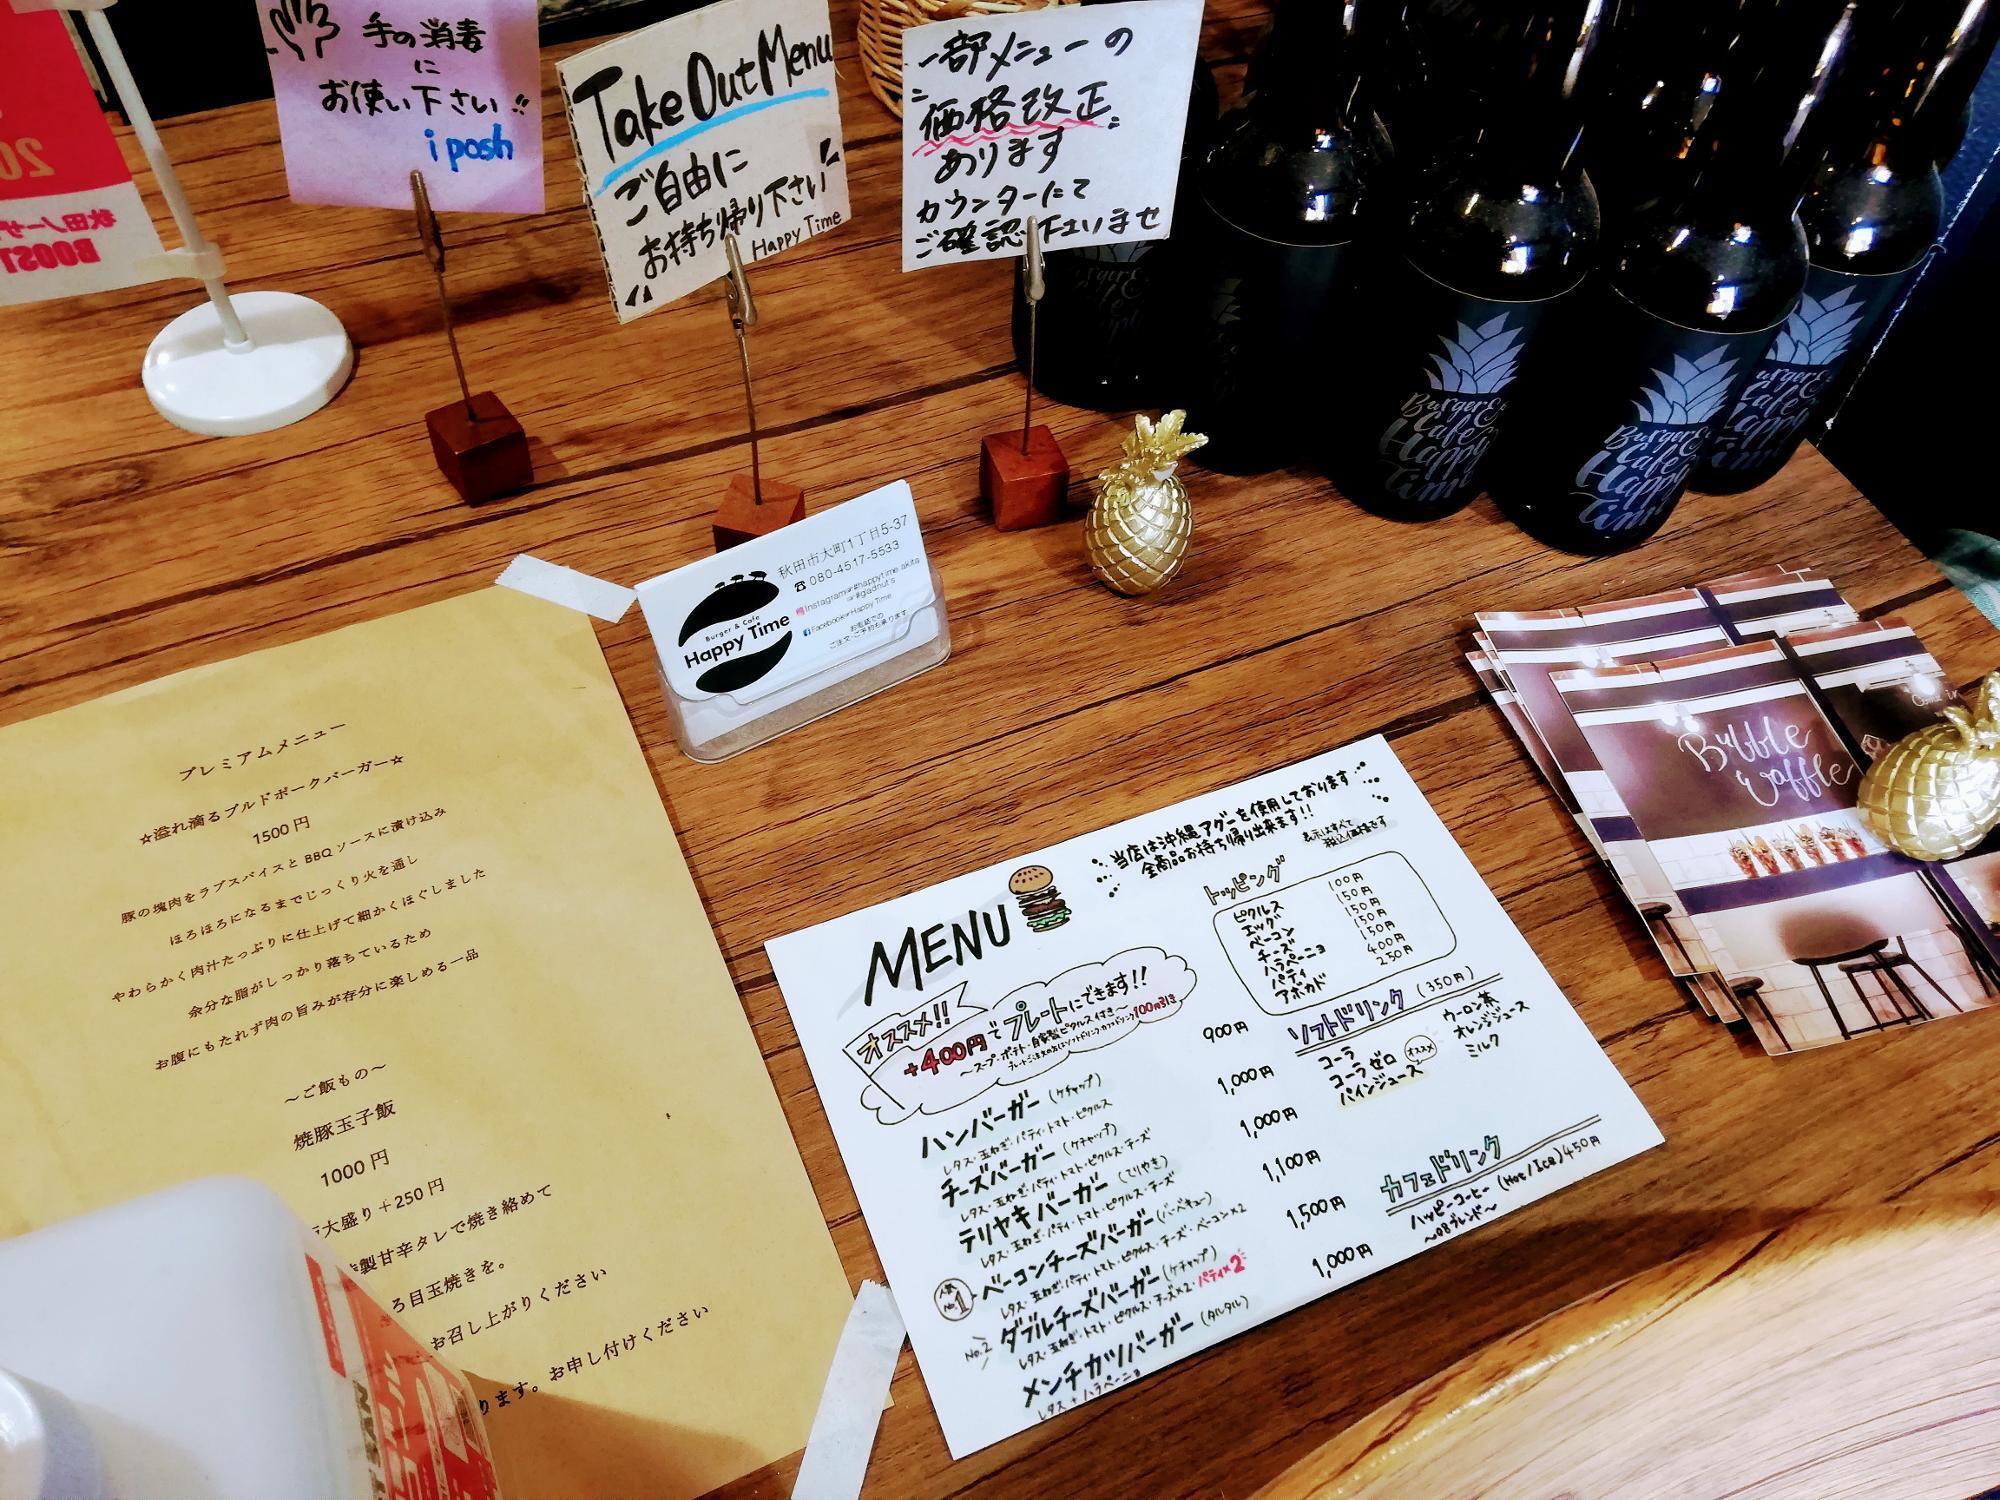 手の消毒
に
お使い下さい!!
i posh
Take Out Menu
ご自由に
お持ち帰り下さい
Happy Time
一部メニューの
価格改正
あります
カウンターにて
ご確認下さいませ
20
秋田ノーザ
BOOST
Burger&
Cafe
Happy
Time
Burger&
Cafe
Happy
Time
秋田市大町1丁目5-37
☎080-4517-5533
Instagram #happytime.akita
#gladnut's
Facebook Happy Time
お電話での
ご注文・ご予約も承ります
Burger & Cafe
Happy Time
プレミアムメニュー
☆溢れ滴るプルドポークバーガー☆
1500円
豚の塊肉をラブスパイスとBBQソースに漬け込み
ほろほろになるまでじっくり火を通し
やわらかく肉汁たっぷりに仕上げて細かくほぐしました
余分な脂がしっかり落ちているため
お腹にもたれず肉の旨みが存分に楽しめる一品
～ご飯もの～
焼豚玉子飯
1000円
大盛り+250円
製甘辛タレで焼き絡めて
ろ目玉焼きを。
お召し上がりください
ります。お申し付けください
MENU
当店は沖縄アグーを使用しております
全商品お持ち帰り出来ます!!
表示はすべて
税込価格です
オススメ!!
+400円でプレートにできます!!
～スープ・ポテト・自家製ピクルス付き～
プレートご注文の方はソフトドリンク・カフェドリンク100円引き
ハンバーガー (ケチャップ) 900円
レタス・玉ねぎ・パティ・トマト・ピクルス
チーズバーガー (ケチャップ) 1,000円
レタス・玉ねぎ・パティ・トマト・ピクルス・チーズ
テリヤキバーガー (てりやき) 1,000円
レタス・玉ねぎ・パティ・トマト・ピクルス・チーズ
人気No.1 ベーコンチーズバーガー (バーベキュー) 1,100円
レタス・玉ねぎ・パティ・トマト・ピクルス・チーズ・ベーコン×2
No.2 ダブルチーズバーガー (ケチャップ) 1,500円
レタス・玉ねぎ・トマト・ピクルス・チーズ×2・パティ×2
メンチカツバーガー (タルタル) 1,000円
レタス+ハラペーニョ
トッピング
ピクルス 100円
エッグ 150円
ベーコン 150円
チーズ 150円
ハラペーニョ 150円
パティ 400円
アボカド 250円
ソフトドリンク (350円)
コーラ
コーラゼロ
オススメ
パインジュース
ウーロン茶
オレンジジュース
ミルク
カフェドリンク
ハッピーコーヒー (Hot/Ice) 450円
～08ブレンド～
Bubble
waffle